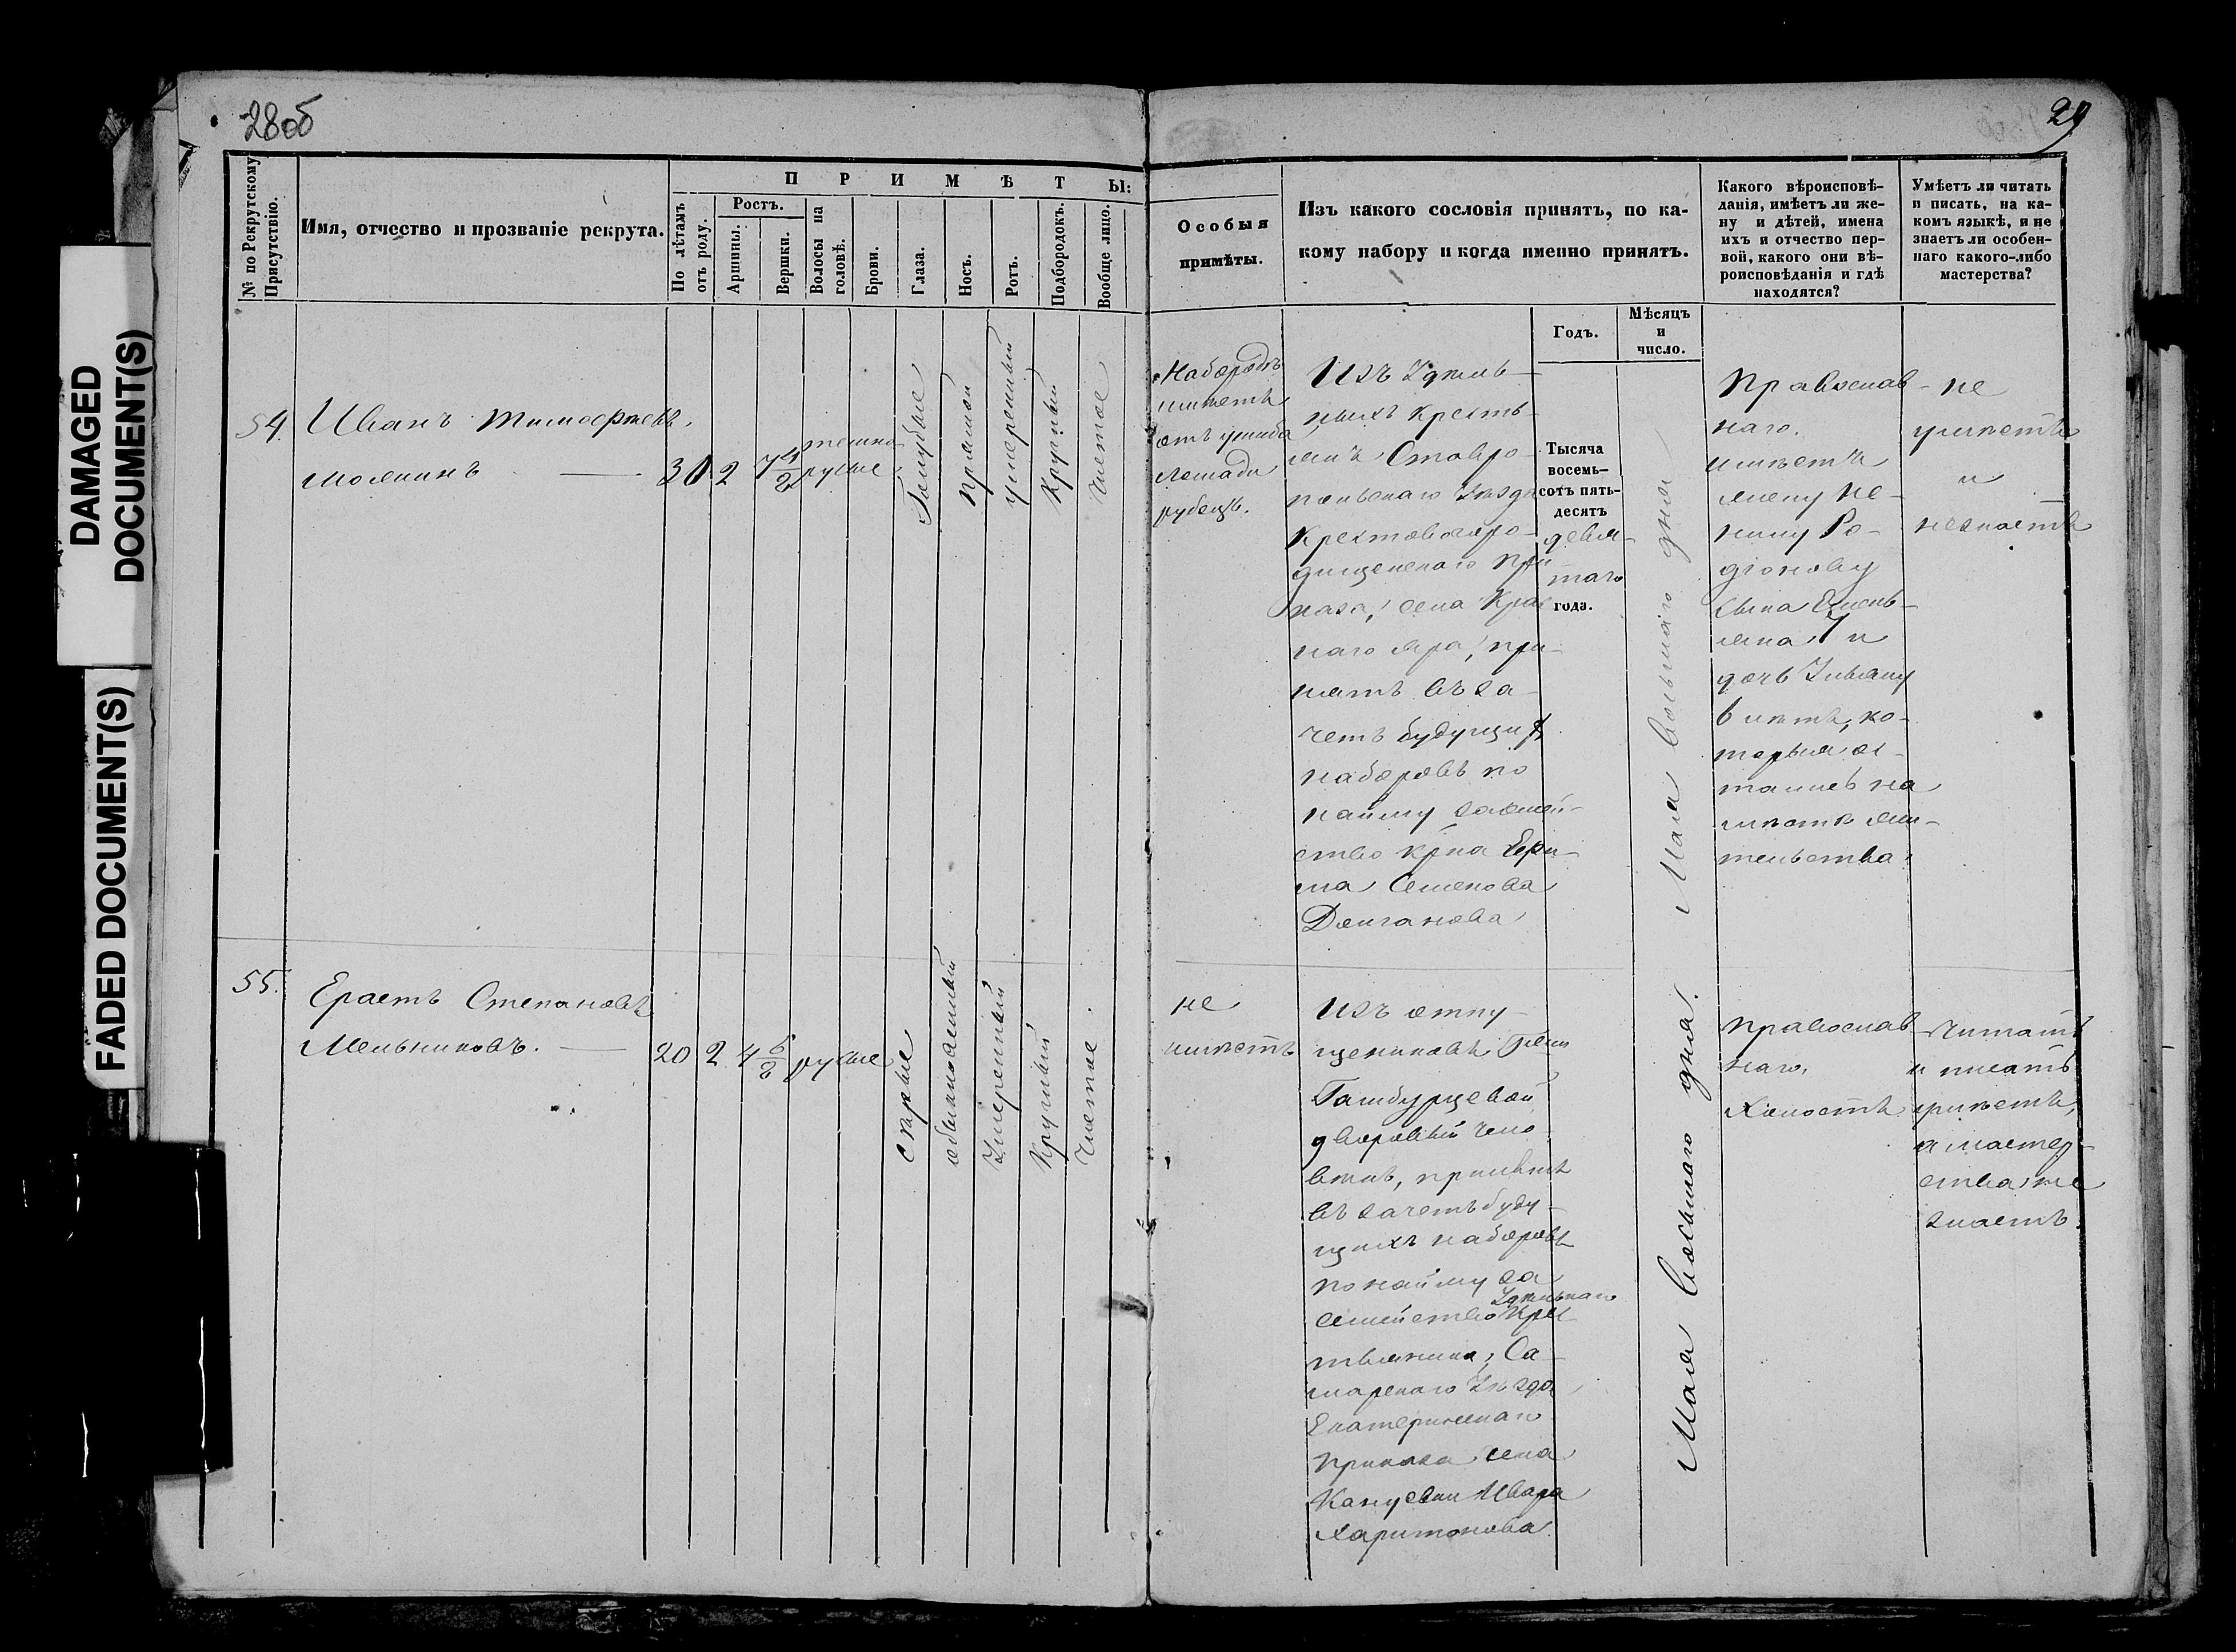 28об
29
№ по Рекрутскому
Присутствію.
Имя, отчество и прозваніе рекрута.
ПРИМѢТЫ:
По лѣтамъ
отъ роду.
Ростъ.
Аршины.
Вершки.
Волосы на
головѣ.
Брови.
Глаза.
Носъ.
Ротъ.
Подбородокъ.
Вообще лицо.
Особыя
примѣты.
Изъ какого сословія принятъ, по ка-
кому набору и когда именно принятъ.
Годъ.
Мѣсяцъ
и
число.
Какого вѣроисповѣ-
данія, имѣетъ ли же-
ну и дѣтей, имена
ихъ и отчество пер-
вой, какого они вѣ-
роисповѣданія и гдѣ
находятся?
Умѣетъ ли читать
и писать, на ка-
комъ языкѣ, и не
знаетъ ли особен-
наго какого-либо
мастерства?
54.
Иванъ Тимофеевъ
30
2
7 4/2
темно
русые
Голубые
прямой
умеренный
Круглый
Чистое
На бородѣ
имеетъ
отъ ушиба
Лошади
рубецъ.
Изъ Удѣль-
ныхъ кресть-
янъ Ставро-
польскаго Уѣзда
Крестовогоро-
дищенскаго При-
каза, села Крас
наго яра, при-
нятъ въ за-
четъ будущих
наборовъ по
найму за семей-
ство кр-на Ефи-
ма Семенова
Долганова
Тысяча
восемь-
сотъ пять-
десятъ
девя-
таго
года.
Мая Восьмаго дня
Православ-
наго.
имѣетъ
жену Не-
нилу Ро-
діонову
сына Емель-
яна 7 и
дочь Ульяну
6 лѣтъ, ко-
торыя ос-
тались на
мѣстѣ жи-
тельства.
не
умѣетъ
и
незнаетъ
55.
Ерастъ Степановъ
Мельниковъ.
20
2
4 6/2
русые
Серые
обыкновенный
Умеренный
Круглый
Чистое
не
имѣетъ
Изъ отпу-
щенниковъ
дворовый чело-
вѣкъ, принятъ
въ зачетъ буду-
щихъ наборовъ
по найму за
семейство Удѣльнаго Крес
тьянина, Са-
марскаго Уѣзда
Екатеринскаго
приказа села
Харитонова.
Мая Восьмаго дня.
Православ-
наго.
Холостъ
Читать
и писать
умѣетъ,
а мастер-
ства не
знаетъ.